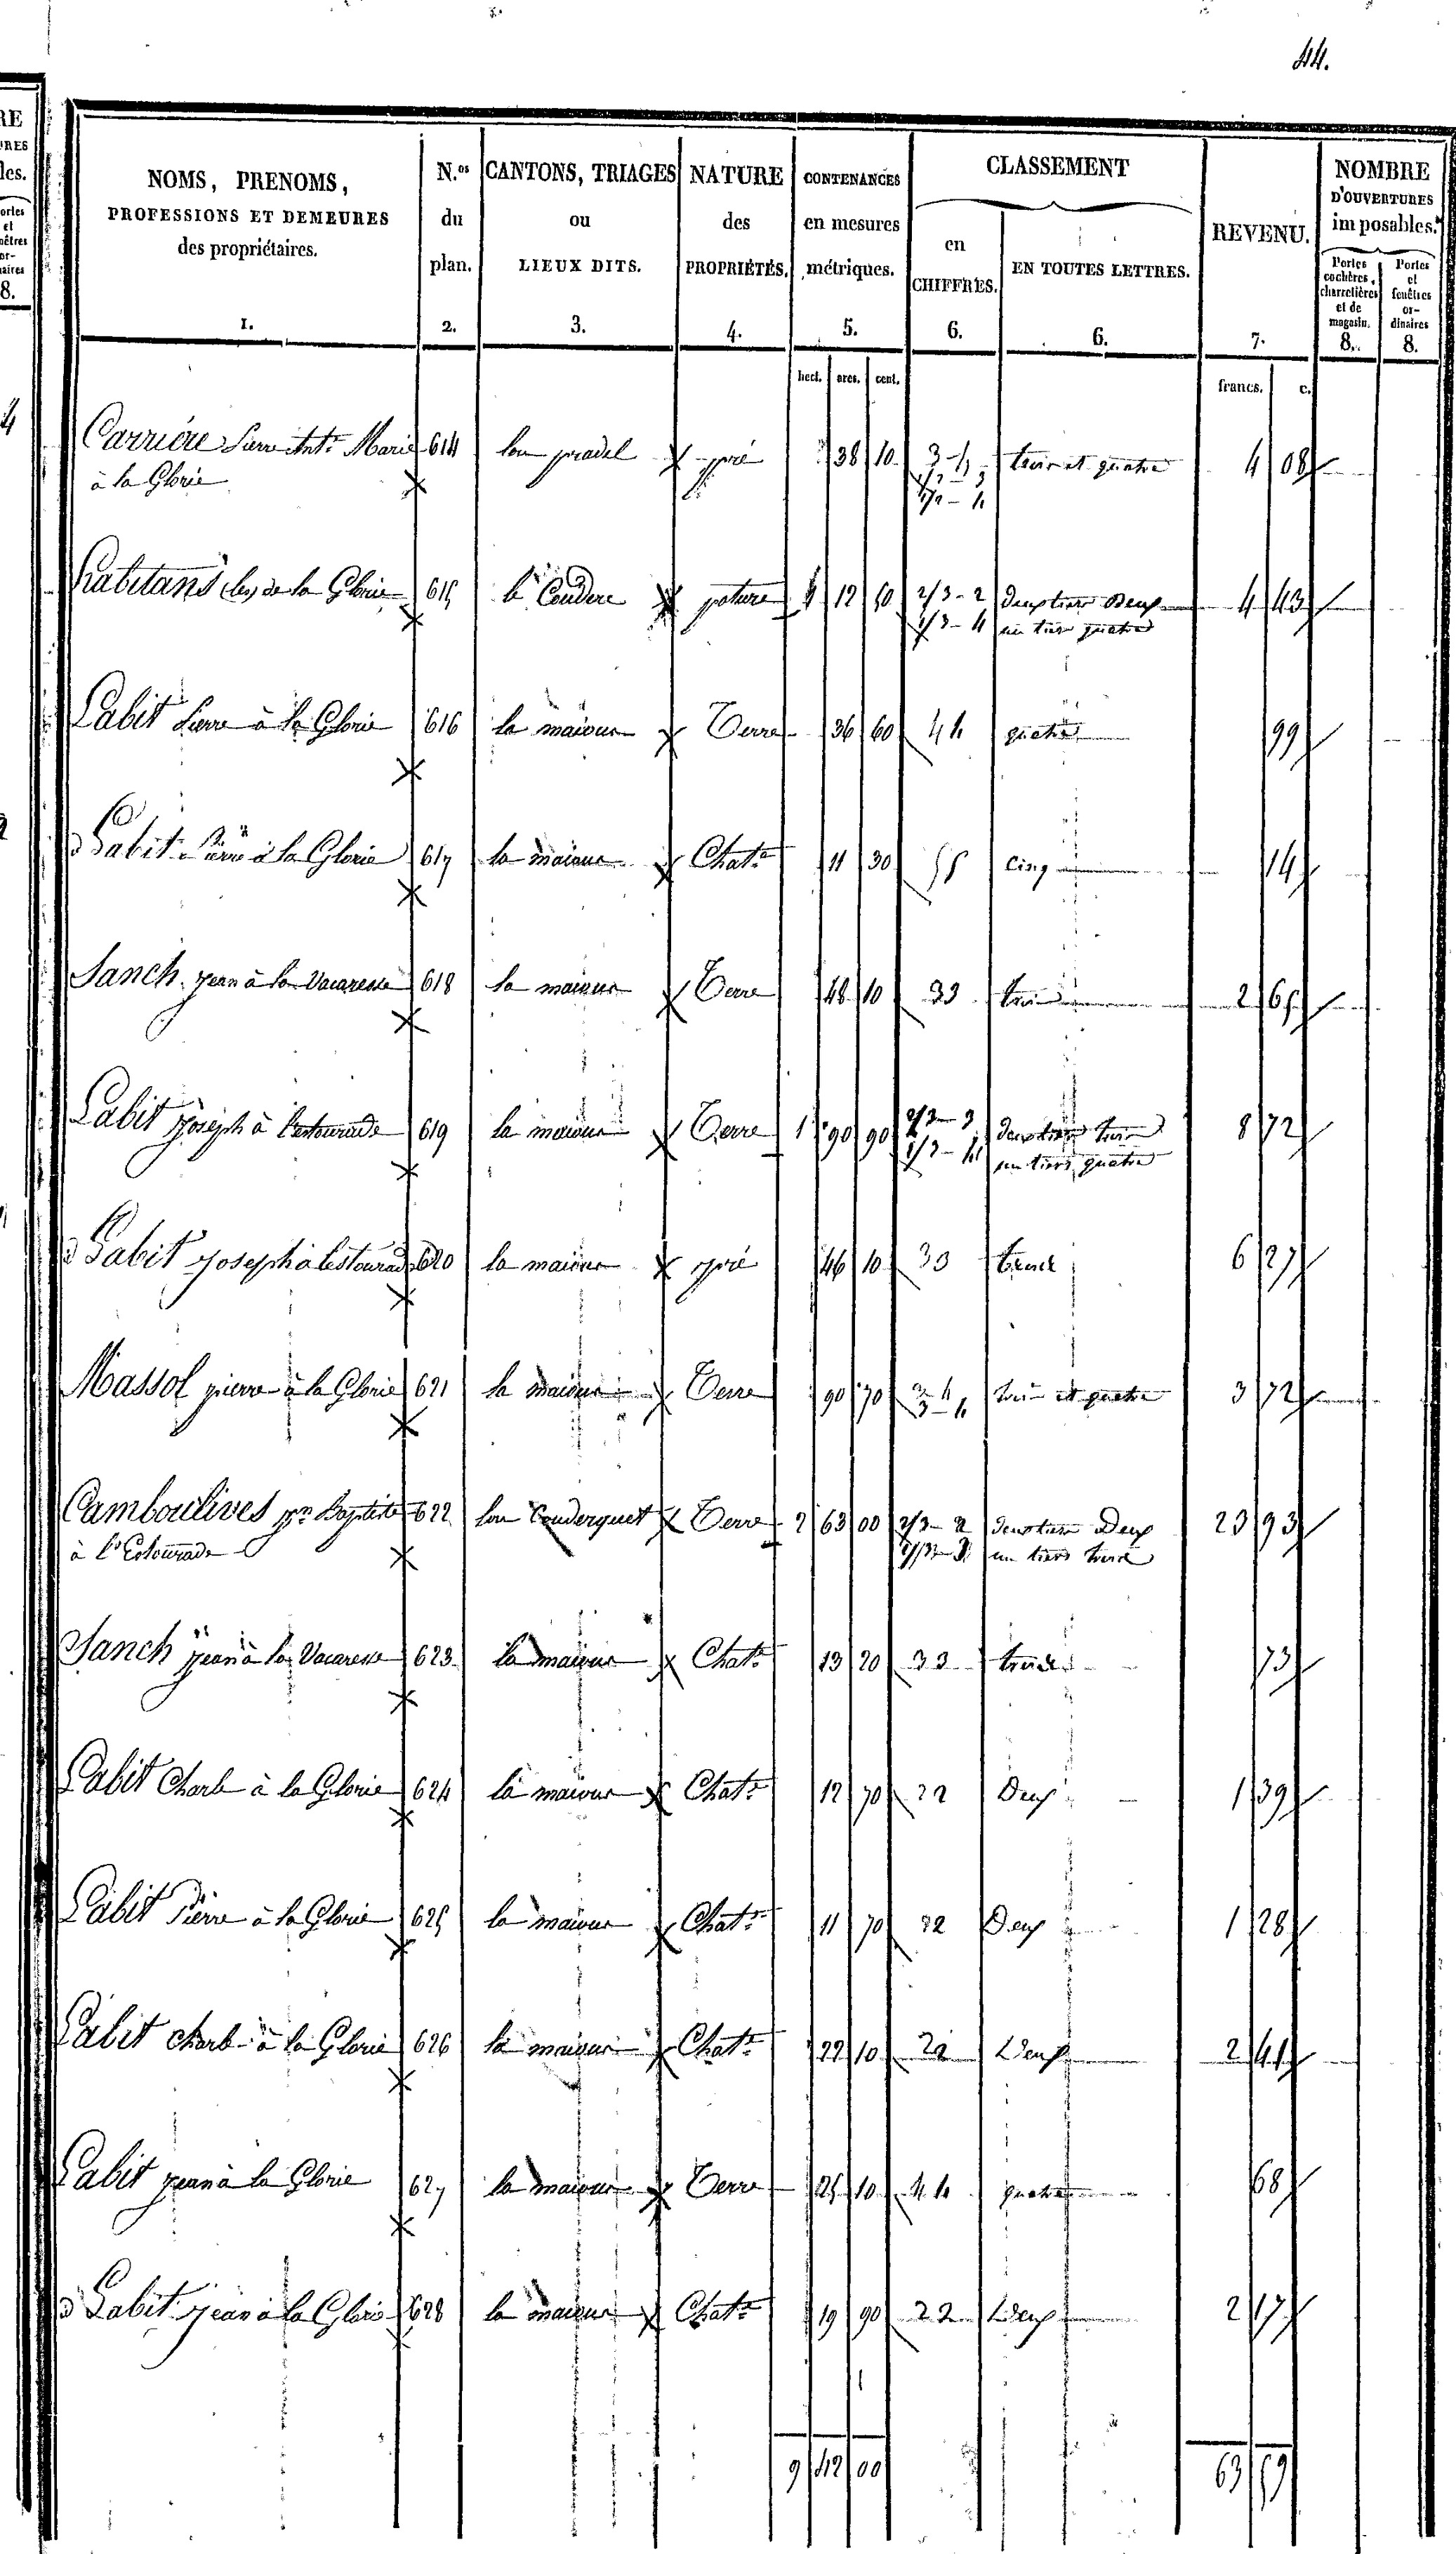 44.
RE
URES
les.
ortes
et
nêtres
or-
naires
8.
NOMS, PRENOMS,
PROFESSIONS ET DEMEURES
des propriétaires.
1.
N.os
du
plan.
2.
CANTONS, TRIAGES
ou
LIEUX DITS.
3.
NATURE
des
PROPRIÉTÉS.
4.
CONTENANCES
en mesures
métriques.
5.
CLASSEMENT
en
CHIFFRES.
6.
EN TOUTES LETTRES.
6.
REVENU.
7.
NOMBRE
D'OUVERTURES
imposables.
Portes
cochères,
charretières
et de
magasin.
8.
Portes
et
fenêtres
or-
dinaires
8.
hect. ares. cent. francs. c.
Carrière Pierre Ant.e Marie 614 lou pradel pré 38 10 3-4 trois et quatre 4 08
à la Glorie 1/2 - 3
1/2 - 4
habitans les de la Glorie 615 le Couderc pature 12 60 2/3 - 2 deux tiers Deux 4 43
1/3 - 4 un tiers quatre
Labit Pierre à la Glorie 616 la maioure Terre 36 60 4 4 quatre 99
d Labit Pierre à la Glorie 617 la maioure Chat.e 11 30 5 5 Cinq 14
Sanch jean à la Vacaresse 618 la maioure Terre 48 10 3 3 trois 2 65
Labit joseph à l'estourade 619 la maioure Terre 1 90 90 2/3 - 3 deux tiers trois 8 72
1/3 - 4 un tiers quatre
d Labit joseph à lestourade 620 la maioure pré 46 10 3 3 trois 6 27
Massol pierre à la Glorie 621 la maioure Terre 90 70 3 4 trois et quatre 3 72
3 - 4
Camboulives jn Baptiste 622 lou Couderquet Terre 2 63 00 2/3 - 2 deux tiers Deux 23 93
à l'Estourade 1/3 - 3 un tiers trois
Sanch jean à la Vacaresse 623 la maioure Chat.e 13 20 3 3 trois 73
Labit Charle à la Glorie 624 la maioure Chat.e 12 70 2 2 Deux 1 39
Labit Pierre à la Glorie 625 la maioure Chat.e 11 70 2 2 Deux 1 28
Labit charle à la Glorie 626 la maioure Chat.e 22 10 2 2 Deux 2 41
Labit jean à la Glorie 627 la maioure Terre 25 10 4 4 quatre 68
d Labit jean à la Glorie 628 la maioure Chat.e 19 90 2 2 Deux 2 17
9 42 00 63 59